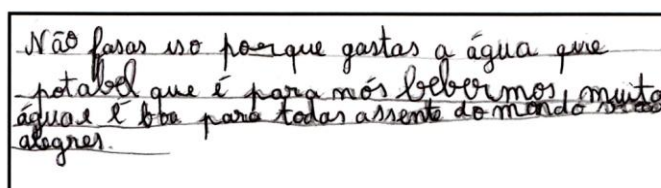 Não fasas iso porque gastas a água que
potabel que é para nós bebermos, muita
água e é boa para todas assente do mondo
alegres.